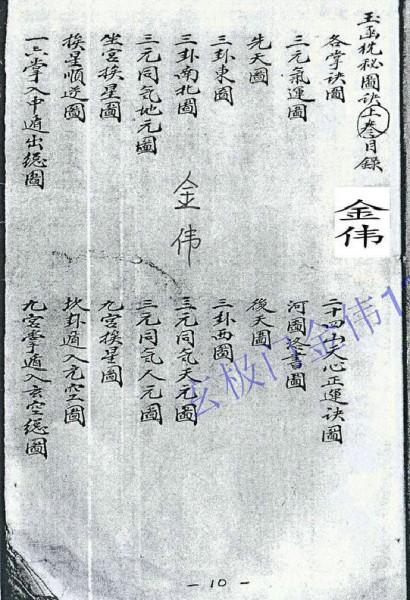 玉函枕秘圖訣上叁目錄
各掌訣圖
二十四山天心正運訣圖
三元氣運圖
河圖洛書圖
先天圖
後天圖
三卦東圖
三卦西圖
三卦南北圖
三元同気天元圖
三元同気地元圖
三元同気人元圖
坐宮挨星圖
九宮挨星圖
挨星順逆圖
坎卦遁入元空圖
一六掌入中遁出總圖
九宮掌遁入玄空總圖
金伟
金伟
玄极门金伟1
- 10 -